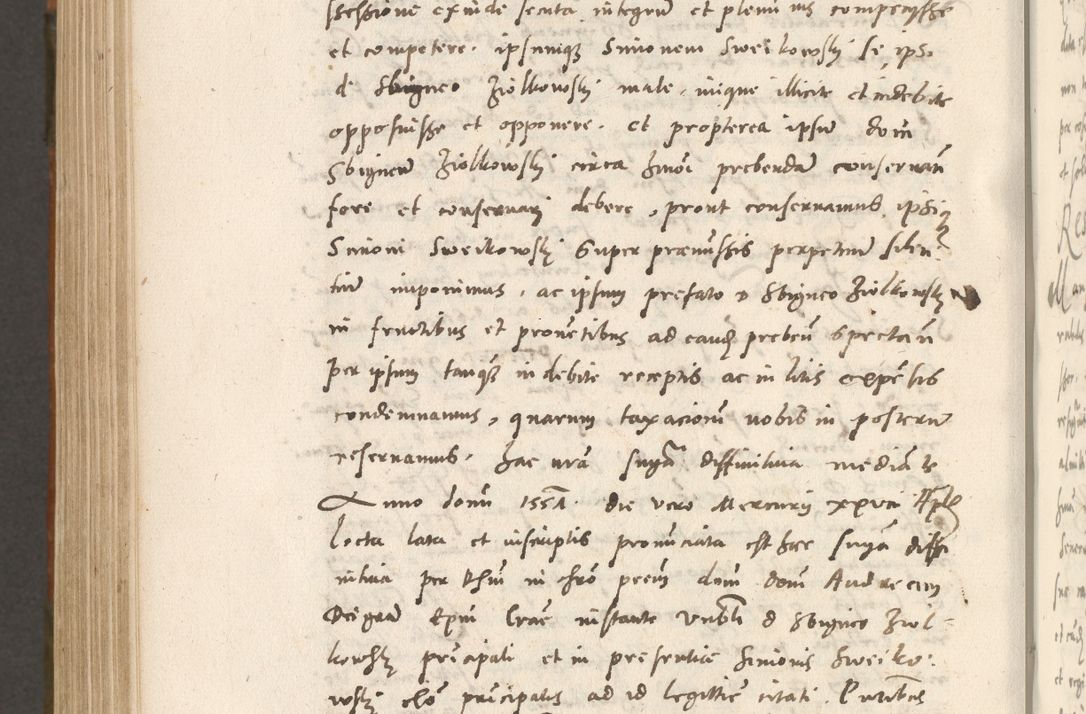 ssessione exinde secuta integrum et plenum ius competysse
et competere. ipsumq Simonem Sweikowski se ips.
d. Sbigneo Ziolkowski male, inique illicite et indebite
opposuisse et opponere. et propterea ipsum dom
Sbigneum Ziolkowski circa hmoi prebendam conservan
fore et conservari debere, prout conservamus, ipsiq
Simoni Sweikowski super premissis perpetuum silen
tium imponimus, ac ipsum prefato d Sbigneo Ziolkowski
in fructibus et proventibus ad eand preben spectan
per ipsum tanq indebite receptis ac in litis expensis
condemnamus, quarum taxacionem nobis in posterum
reservamus. hac nra snya diffinitiva median te
Anno domi 1551. die vero Mercurii xxvii Aplis
lecta lata et inscriptis pronunciata est hec snya diffi
nitiva per Rhm in chro prem dom dom Andream
Episcopum Crac instante Vnbli d Sbigneo Ziol
kowski principali et in presentia Simonis Sweiko:
wski principalis ad id legittime citati. Presentibus